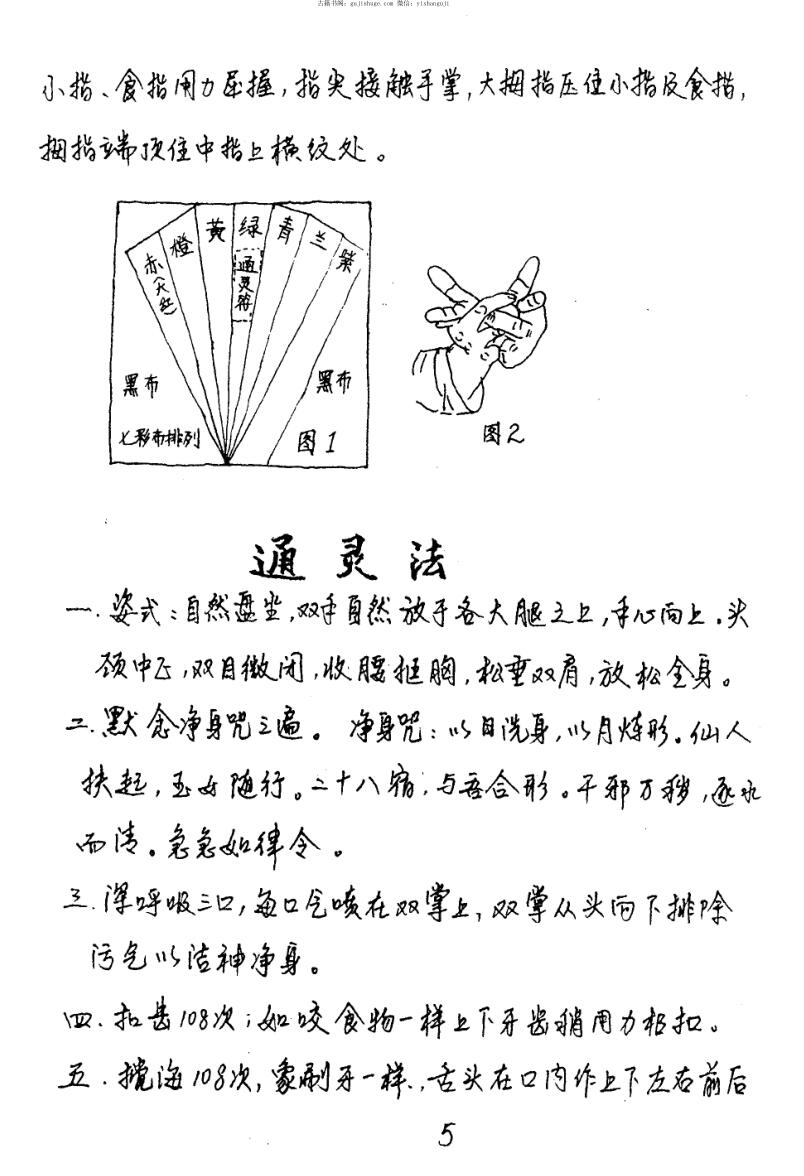 古籍书阁：gujishuge.com 微信：yishanguji
小指、食指用力屈握，指尖接触手掌，大拇指压住小指及食指，
拇指端顶住中指上横纹处。
赤(大红)
橙
黄
绿
青
兰
紫
通灵符
黑布
黑布
七彩布排列
图1
图2
通灵法
一.姿式：自然盘坐，双手自然放于各大腿之上，手心向上。头
颈中正，双目微闭，收腰抠胸，松垂双肩，放松全身。
二.默念净身咒三遍。净身咒：以日洗身，以月炼形。仙人
扶起，玉女随行。二十八宿，与吾合形。千邪万秽，逐水
而清。急急如律令。
三.深呼吸三口，每口气喷在双掌上，双掌从头向下排除
污气以洁神净身。
四.扣齿108次；如咬食物一样上下牙齿稍用力相扣。
五.搅海108次，象刷牙一样，舌头在口内作上下左右前后
5